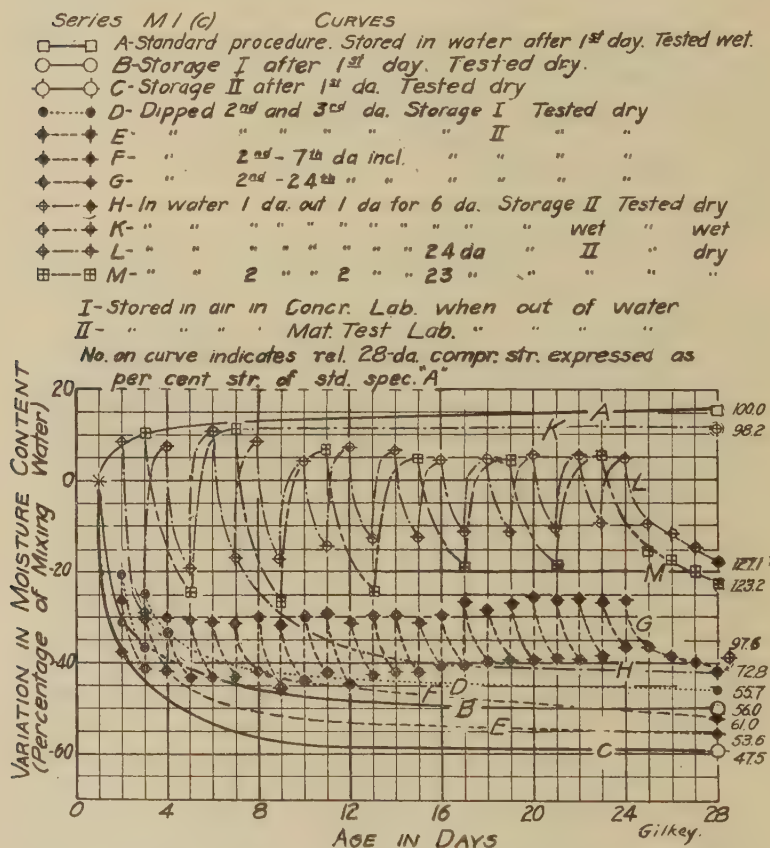 Series M1(c) CURVES
A-Standard procedure. Stored in water after 1st day. Tested wet.
B-Storage I after 1st day. Tested dry.
C-Storage II after 1st da. Tested dry
D-Dipped 2nd and 3rd da. Storage I Tested dry
E- " " " " " " II " "
F- " 2nd-7th da incl. " " " "
G- " 2nd-24th " " " " " "
H-In water 1 da. out 1 da for 6 da. Storage II Tested dry
K- " " " " " " " " " wet " wet
L- " " " " " " " 24 da " II " dry
M- " " 2 " " 2 " 23 " " " " "
I-Stored in air in Concr. Lab. when out of water
II- " " " " Mat. Test Lab. " " " "
No. on curve indicates rel. 28-da. compr. str. expressed as
per cent str. of std. spec. "A"
VARIATION IN MOISTURE CONTENT
(Percentage of Mixing Water)
20
0
-20
-40
-60
A
K
L
M
G
H
D
F
B
E
C
100.0
98.2
127.1
123.2
97.6
72.8
55.7
56.0
61.0
53.6
47.5
0 4 8 12 16 20 24 28
AGE IN DAYS
Gilkey.